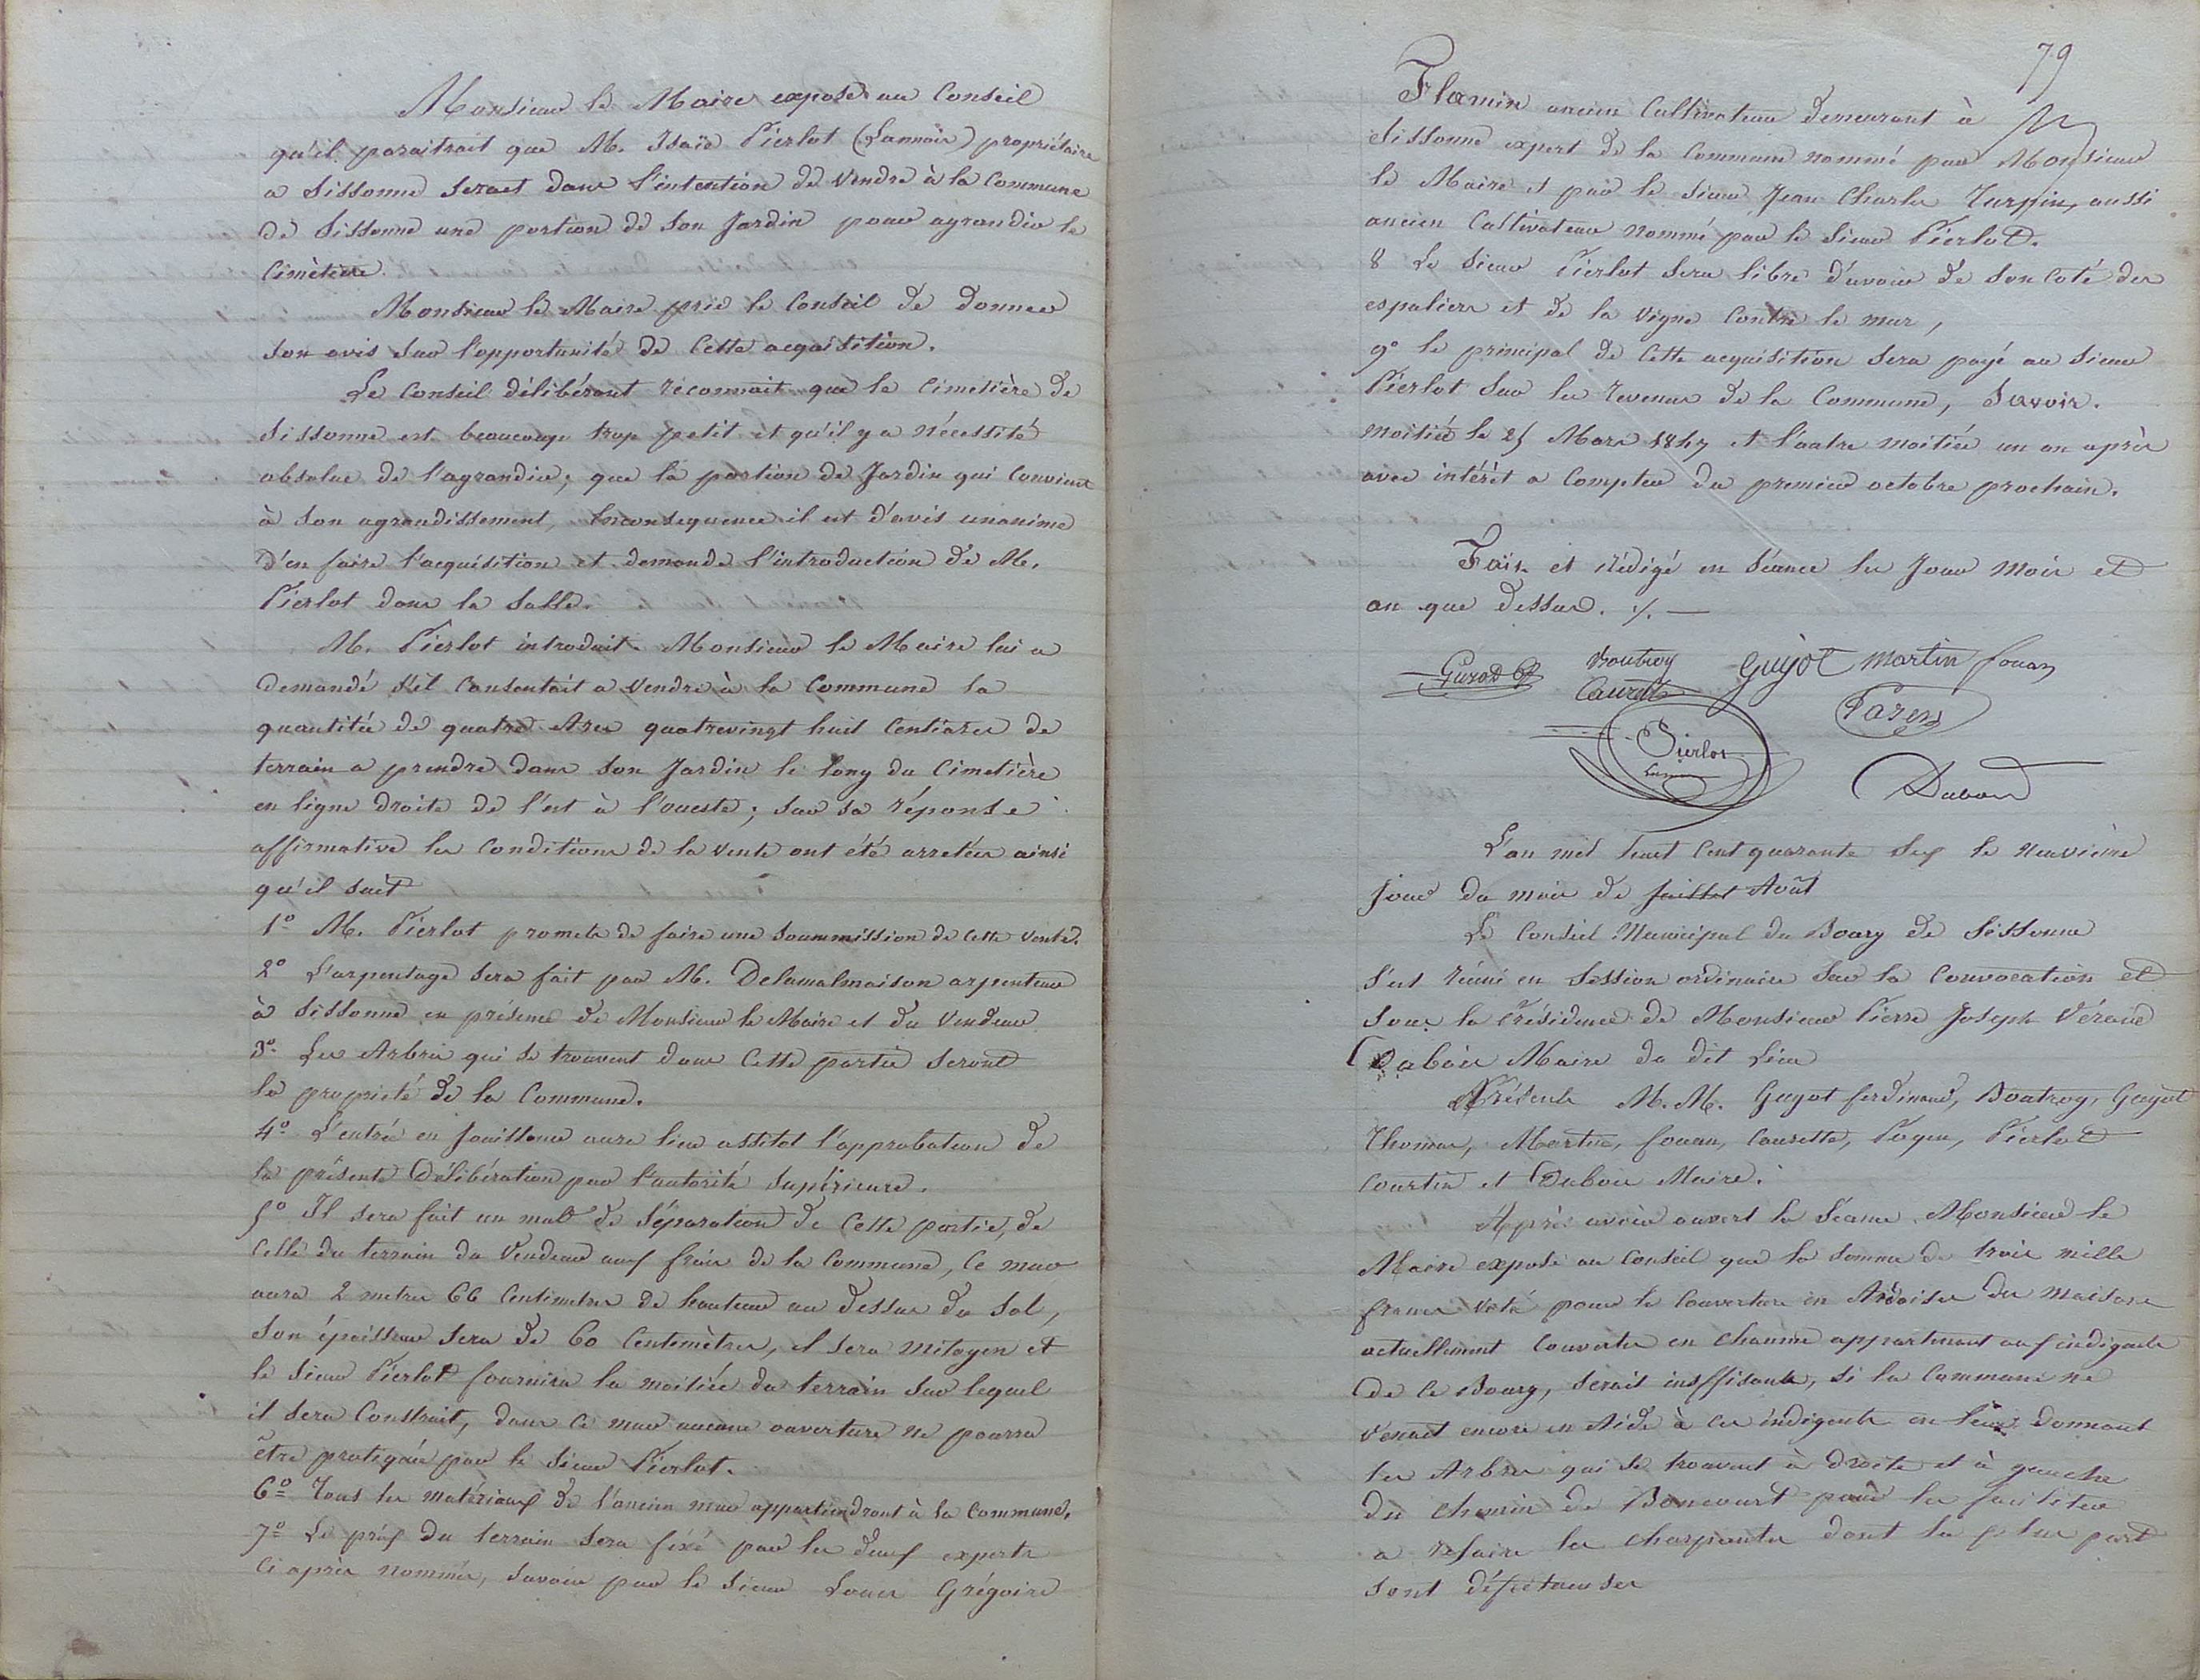 Monsieur le Maire expose au Conseil
qu'il paraitrait que M. Isaïe Pierlot (Lannois) propriétaire
a Sissonne serait dans l'intention de vendre à la Commune
de Sissonne une portion de son Jardin pour agrandir le
Cimètiere.
Monsieur le Maire prie le Conseil de donner
son avis sur l'opportunité de cette acquisition.
Le Conseil délibérant reconnait que le Cimetière de
Sissonne est beaucoup trop petit et qu'il y a nécessité
absolue de l'agrandir; que la portion de Jardin qui convient
à son agrandissement, Enconsequence il est d'avis unanime
d'en faire l'acquisition et demande l'introduction de M.
Pierlot dans la Salle.
M. Pierlot introduit. Monsieur le Maire lui a
demandé s'il consentait a vendre à la Commune la
quantitée de quatre Ares quatrevingt huit Centiares de
terrain a prendre dans son Jardin le long du Cimetière
en ligne droite de l'est à l'oueste; sur sa réponse
affirmative les Conditions de la vente ont été arretées ainsi
qu'il suit
1° M. Pierlot promets de faire une soummission de cette vente.
2° L'arpentage sera fait par M. Delamalmaison arpenteur
à Sissonne en présence de Monsieur le Maire et du Vendeur
3° Les Arbres qui se trouvent dans cette partie seront
la propriété de la Commune.
4° L'entrée en Jouissance aura lieu assitot l'approbation de
la présente Délibération par l'autorité Supérieure.
5° Il sera fait un mur de séparation de cette partie, de
celle du terrain du Vendeur aux frais de la Commune, Ce mur
aura 2 metres 66 Centimetres de hauteur au dessus du sol,
son épaisseur sera de 60 Centimètres, il sera mitoyen et
le sieur Pierlot fournira la moitiée du terrain sur lequel
il sera Construit, dans ce mur aucune ouverture ne pourra
être pratiquée par le Sieur Pierlot.
6° Tous les matériaux de l'ancien mur appartiendront à la Commune,
7° Le prix du terrain sera fixé par les deux experts
Ci après nommés, Savoir par le Sieur Louis Grégoire
79
Flamin ancien Cultivateur demeurant à
Sissonne expert de la Commune nommé par Monsieur
le Maire et par le sieur Jean Charles Turpin, aussi
ancien Cultivateur nommé par le Sieur Pierlot.
8 Le Sieur Pierlot sera libre d'avoir de son coté des
espaliers et de la vigne Contre le mur,
9° le principal de cette acquisition sera payé au sieur
Pierlot sur les revenus de la Commune, Savoir.
moitiée le 25 Mars 1847 et l'autre moitiée un an après
avec intérèt a Compter du premier octobre prochain.
Fait et rédigé en Séance les Jour Mois et
an que dessus. ./. —
Guyot Boutroy Guyot Martin fouan
Caurette Payen
Pierlot
Lannois
Dubois
L'an mil huit Cent quarante Six le neuvième
jour du mois de Juillet Août
Le Conseil Municipal du Bourg de Sissonne
s'est réuni en Session ordinaire sur la Convocation et
sous la Présidence de Monsieur Pierre Joseph Véraud
Dubois Maire du dit Lieu
Présents M.M. Guyot ferdinand, Boutroy, Guyot
Thomas, Martin, fouan, Caurette, Payen, Pierlot
Courtin et Dubois Maire.
Après avoir ouvert la Séance Monsieur le
Maire expose au Conseil que la Somme de trois mille
francs voté pour la Couverture en Ardoises des maisons
actuellement Couvertes en chaume appartenant aux indigents
de ce Bourg, serait insffisante, si la Commune ne
venait encore en Aide à ces indigents en leur donnant
les Arbres qui se trouvent à droite et à gauche
du chemin de Boncourt pour les faciliter
a refaire les charpentes dont la plus part
sont défectueuses